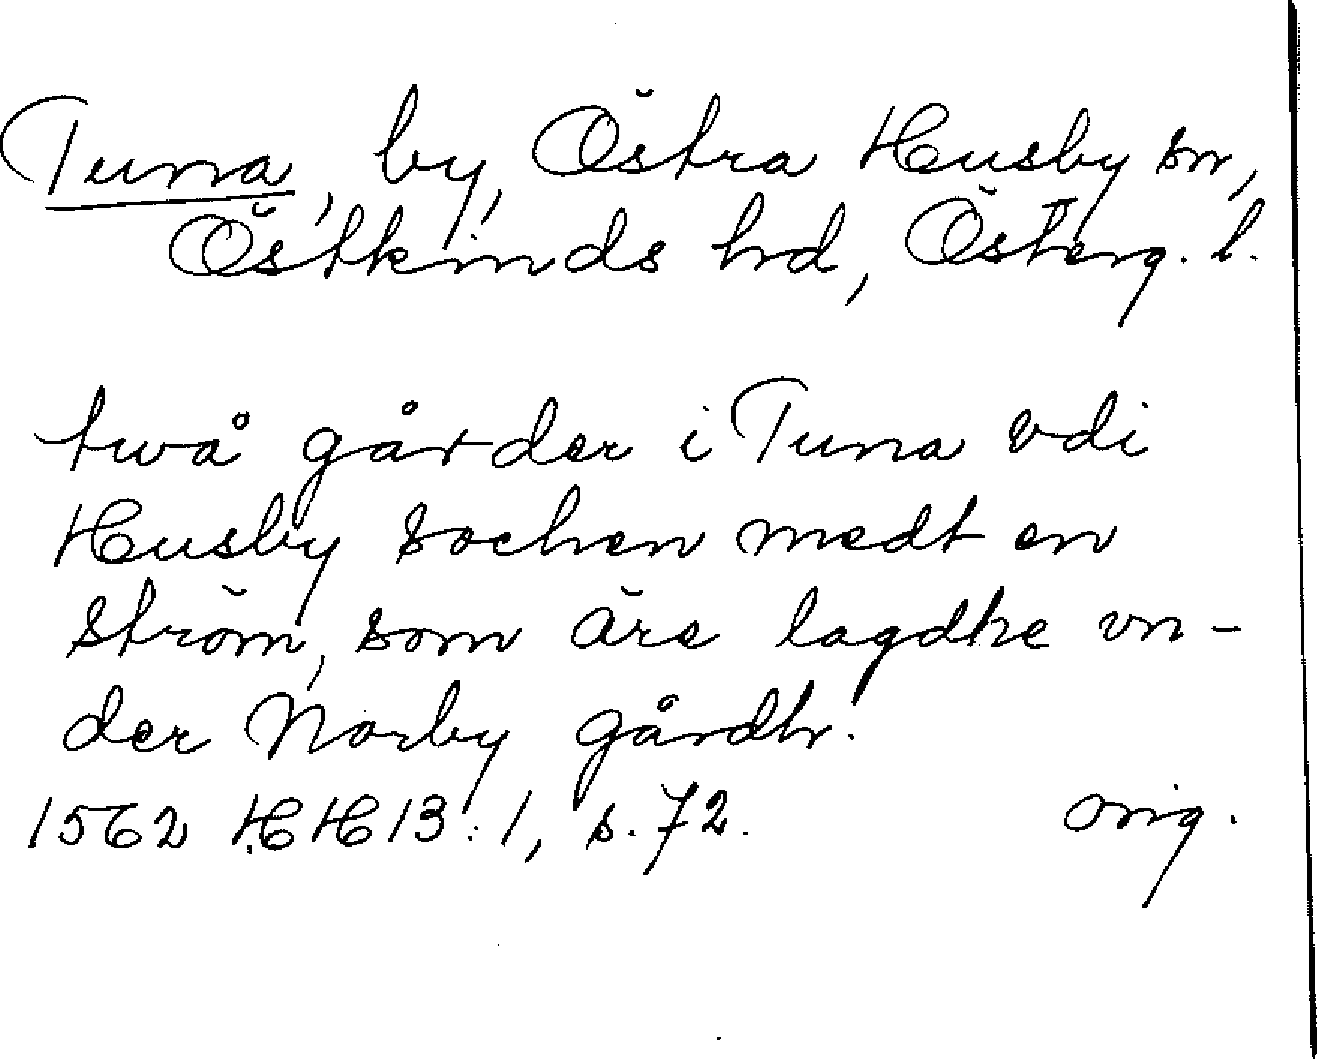 Tuna, by, Östra Husby sn,
Östkinds hd, Österg. l.
twå gårder i Tuna vdi
Husby sochen medt en
ström, som äre lagdhe vn-
der Norby gårdh.
1562 HH 13:1, s. 72. orig.